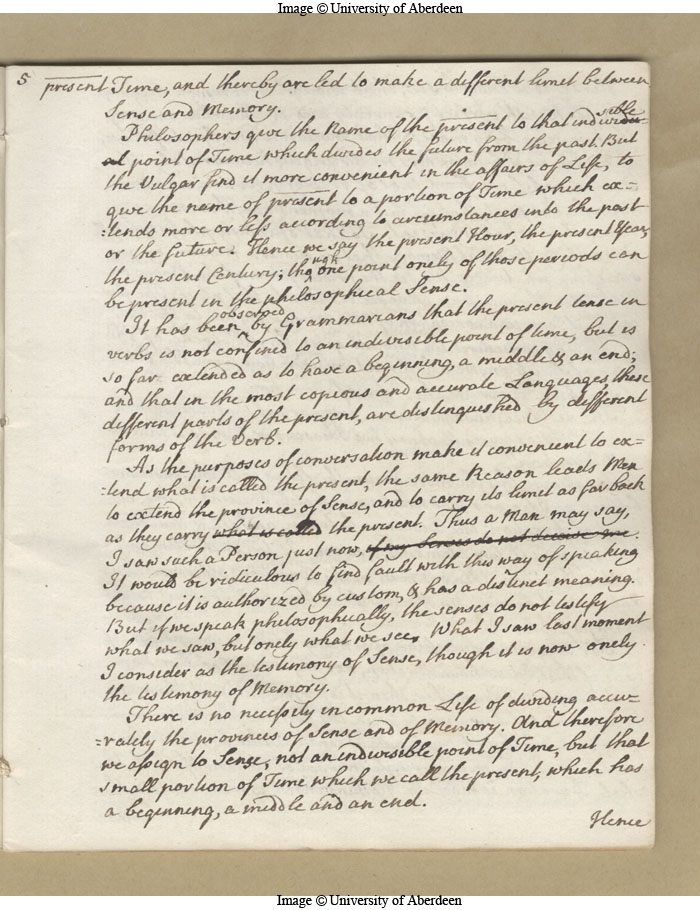 Image © University of Aberdeen
5 present Time, and thereby are led to make a different limit between
Sense and Memory.
Philosophers give the Name of the present to that indivisible
point of Time which divides the future from the past. But
the Vulgar find it more convenient in the affairs of Life, to
give the name of present to a portion of Time which ex=
:tends more or less according to circumstances into the past
or the future. Hence we say the present Hour, the present Year,
the present Century; though one point onely of those periods can
be present in the philosophical Sense.
It has been observed by Grammarians that the present tense in
verbs is not confined to an indivisible point of time, but is
so far extended as to have a beginning, a middle & an end;
and that in the most copious and accurate Languages, these
different parts of the present, are distinguished by different
forms of the verb.
As the purposes of conversation make it convenient to ex=
:tend what is called the present, the same Reason leads Men
to extend the province of Sense, and to carry its limit as far back
as they carry what is called the present. Thus a Man may say,
I saw such a Person just now, if my Senses do not deceive me.
It would be ridiculous to find fault with this way of speaking
because it is authorized by custom, & has a distinct meaning.
But if we speak philosophically, the senses do not testify
what we saw, but onely what we see. What I saw last moment
I consider as the testimony of Sense, though it is now onely
the testimony of Memory.
There is no necessity in common Life of dividing accu=
=rately the provinces of Sense and of Memory. And therefore
we assign to Sense, not an indivisible point of Time, but that
small portion of Time which we call the present, which has
a beginning, a middle and an end.
Hence
Image © University of Aberdeen